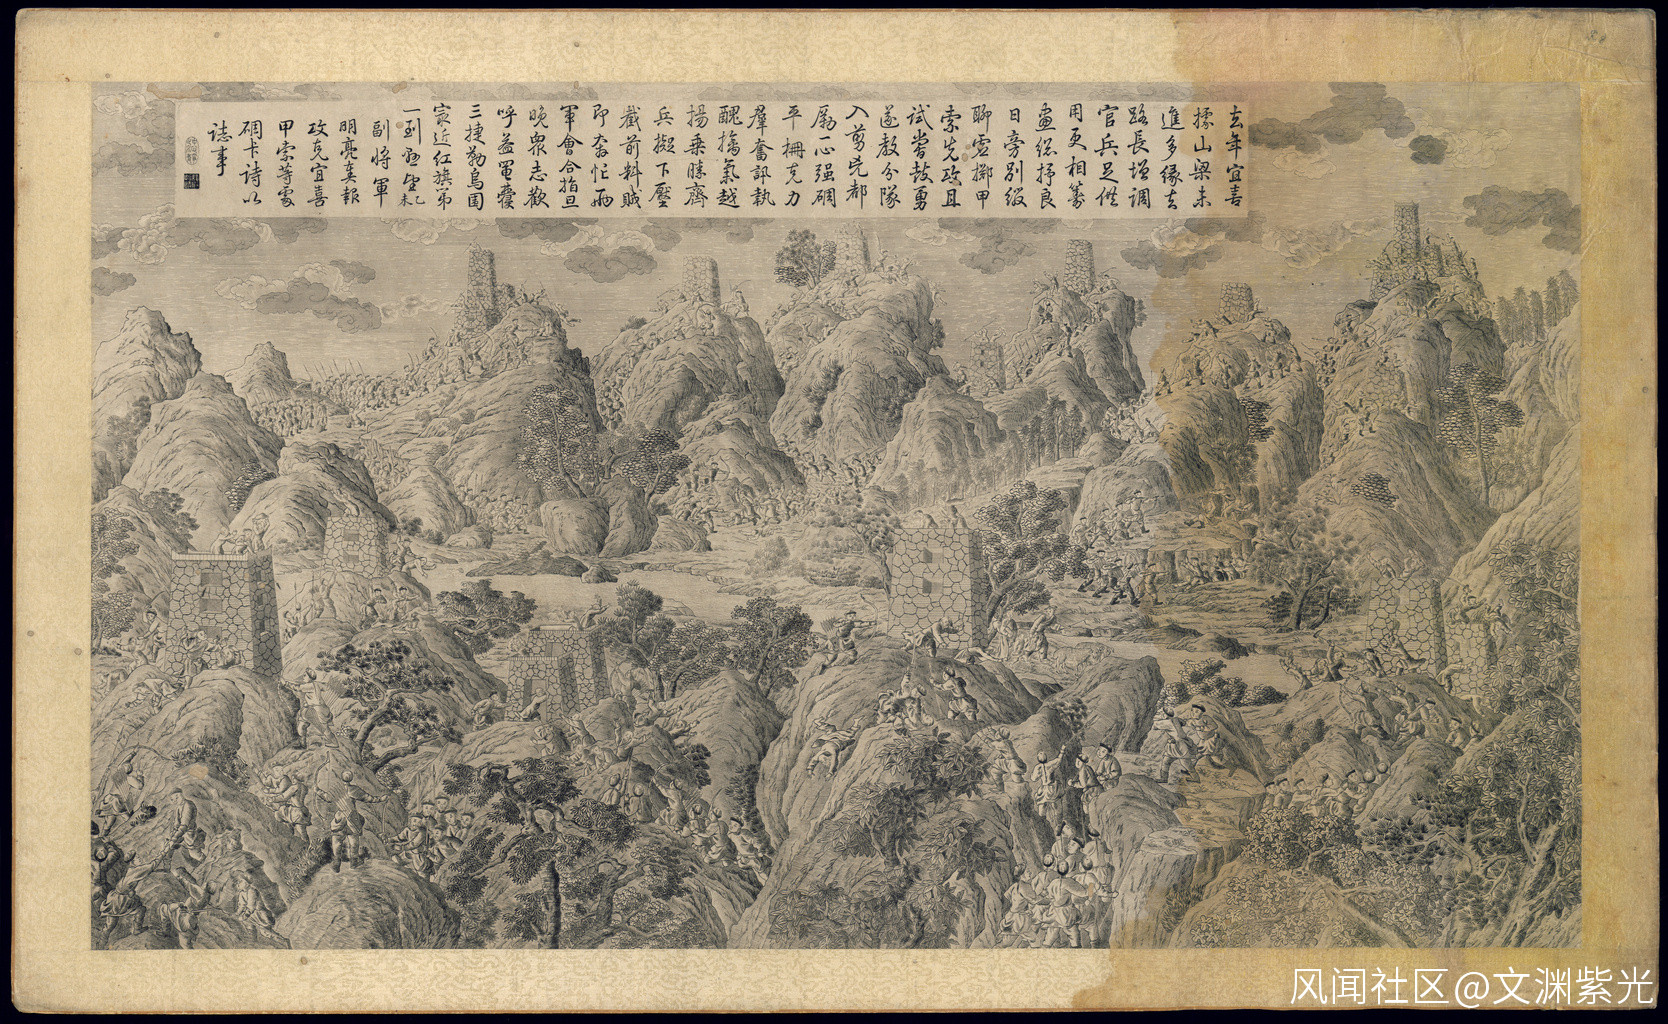 去年宜喜
據山梁未
進多緣去
路長增調
官兵足供
用更相籌
畫總抒良
日旁別綴
聊虛擲甲
索先攻且
試嘗鼓勇
遂教分隊
入剪兇都
勵一心強碉
平柵克力
羣奮訊執
醜擒氣越
揚乘勝齊
兵擬下壓
截前料賊
即奔忙兩
軍會合指旦
晚眾志歡
呼益
三捷勒烏圍
冣近紅旗第
一到望乙未
副將軍
明亮奏報
攻克宜喜
甲索等處
碉卡詩以
誌事
风闻社区@文渊紫光